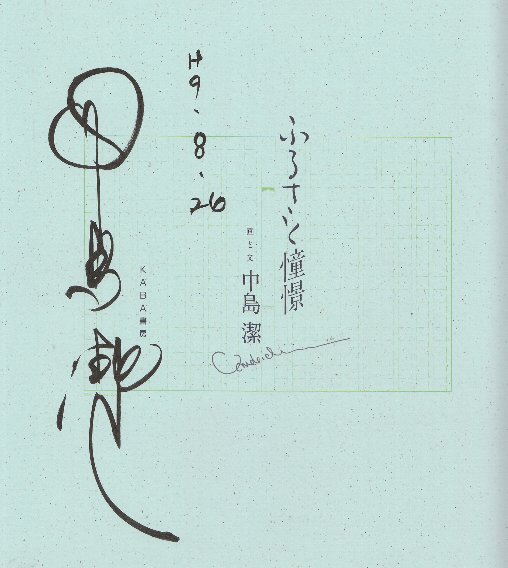 ふるさと憧憬
画と文
中島潔
H9.8.26
KABA書房
中島潔